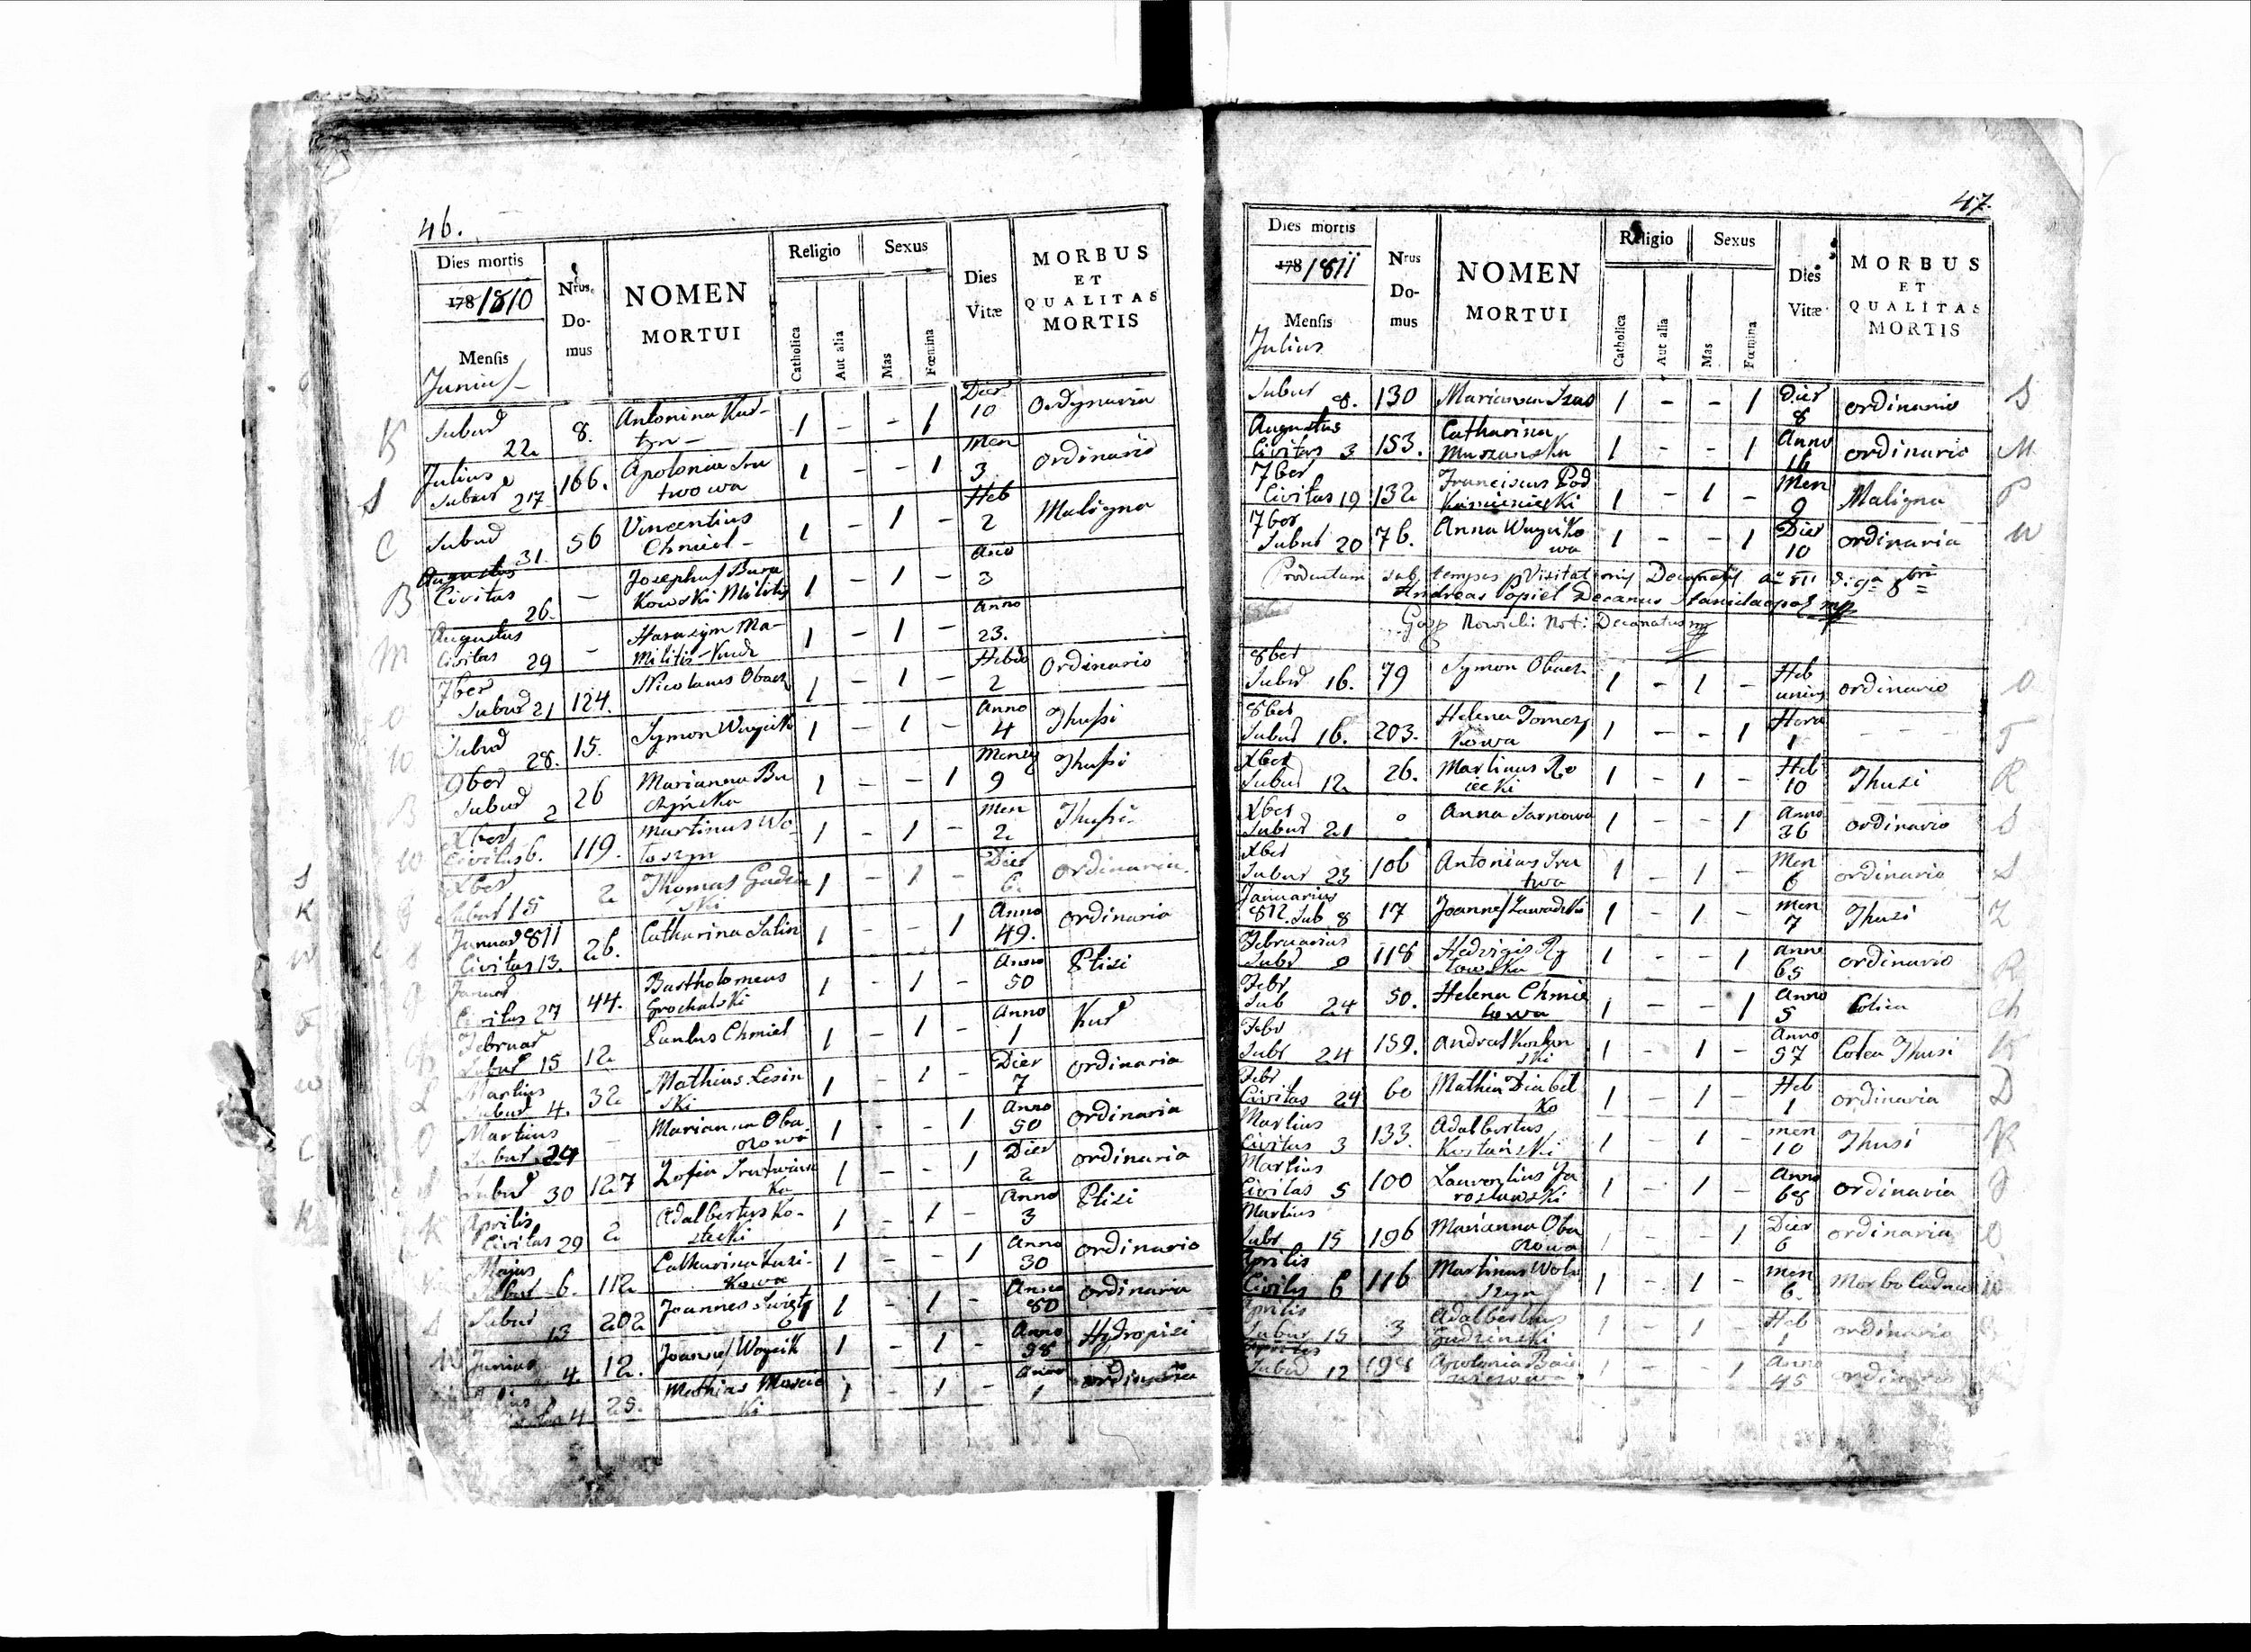 46.
Dies mortis
1781810
Mensis
Junius
Nrus.
Do-
mus
NOMEN
MORTUI
Religio
Catholica
Aut alia
Sexus
Mas
Fœmina
Dies
Vitæ
MORBUS
ET
QUALITAS
MORTIS
K Subur 22 8. Antonina Kur- 1 - - 1 Dier 10 Ordynaria
tyn
S Julius Subur 27 166. Apolonia Sru 1 - - 1 Men 3. ordinario
twowa
C Subur 31. 56 Vincentius 1 - 1 - Heb 2 Maligna
Chmiel
B Augustus Civitas 26. - Josephus Bura 1 - 1 - Ano 3
kowski Militis
M Augustus Civitas 29 - Harasym Ma- 1 - 1 - Anno 23.
Militis
O 7ber Subur 21 124. Nicolaus Obach 1 - 1 - Hebdo 2 Ordinario
W Subur 28. 15. Symon Wuycik 1 - 1 - Anno 4 Thussi
B 9ber Subur 2 26 Marianna Bu 1 - - 1 Menses 9 Thussi
czynska
W Xber Civitas 6. 119. Martinus Wo- 1 - 1 - Men 2 Thussi
loszyn
G Xber Subur 15 2 Thomas Gudzin 1 - 1 - Dier 6. ordinaria
ski
S Januar 811 Civitas 13. 26. Catharina Salin 1 - - 1 Anno 49. ordinaria
G Januar Civitas 27 44. Bartholomeus 1 - 1 - Anno 50 Ptisi
Grochalski
Ch Februar Subur 15 12 Paulus Chmiel 1 - 1 - Anno 1
L Martius Subur 4. 32 Mathias Lesin 1 - 1 - Dier 7 ordinaria
ski
O Martius Subur 24 - Marianna Oba 1 - - 1 Anno 50 ordinaria
chowa
Subur 30 127 Zofia 1 - - 1 Dier 2 ordinaria
ka
K Aprilis Civitas 29 2 Adalbertus Ko- 1 - 1 - Anno 3 Ptisi
stecki
Majus Subur 6. 112 Catharina Kuzi- 1 - - 1 Anno 30 ordinario
kowa
S Subur 13 202 Joannes 1 - 1 - Anno 80 ordinaria
W Junius 4. 12. Joannes Woycik 1 - 1 - Anno 98 Hydropisi
4 25. Mathias 1 - 1 - Anno 1 ordinaria
ki
47.
Dies mortis
1781811
Mensis
Julius
Nrus
Do-
mus
NOMEN
MORTUI
Religio
Catholica
Aut alia
Sexus
Mas
Fœmina
Dies
Vitæ
MORBUS
ET
QUALITAS
MORTIS
Subur 8. 130 Marianna 1 - - 1 Dier 8 ordinario S
Augustus Civitas 3 153. Catharina 1 - - 1 Anno 16 ordinario M
Muszanska
7ber Civitas 19 132 Franciscus Pod 1 - 1 - Men 9 Maligna P
7ber Subur 20 76. Anna Wuyciko 1 - - 1 Dier 10 ordinaria W
wa
Productum sub tempus Visitationis Decanalis
Andreas Popiel Decanus Stanislaopol mp
Nowicki Not: Decanatus
8ber Subur 16. 79 Symon Obach 1 - 1 - Heb unius ordinario O
8ber Subur 16. 203. Helena Tomasz 1 - - 1 Hora 1 - - - T
kowa
Xber Subur 12 26. Martinus Ro 1 - 1 - Heb 10 Thusi R
iecki
Xber Subur 21 0 Anna Sarnowa 1 - - 1 Anno 36 ordinario S
Xber Subur 23 106 Antonius Sru 1 - 1 - Men 6 ordinario S
twa
Januarius 812. Sub 8 17 Joannes Zawadzki 1 - 1 - Men 7 Thusi Z
Februarius Subr 118 Hedvigis Ry 1 - - 1 Anno 65 ordinario R
lowska
Febr Sub 24 50. Helena Chmie 1 - - 1 Anno 5 Colica Ch
lowa
Febr Subr 24 159. Andreas 1 - 1 - Anno 57 Thusi K
ski
Febr Civitas 24 60 Mathia Diabel 1 - 1 - Heb 1 ordinaria D
ko
Martius Civitas 3 133. Adalbertus 1 - 1 - Men 10 Thusi K
Kostański
Martius Civitas 5 100 Laurentius Ja 1 - 1 - Anno 68 ordinaria J
rosławski
Martius Subr 15 196 Marianna Oba 1 - - 1 Dier 6 ordinaria O
chowa
Aprilis Civitas 6 116 Martinus Woło 1 - 1 - Men 6. Morbo W
szyn
Aprilis Subur 15 3 Adalbertus 1 - 1 - Heb 1 ordinario G
Gudzinski
Aprilis Subur 12 198 Apolonia 1 - - 1 Anno 45